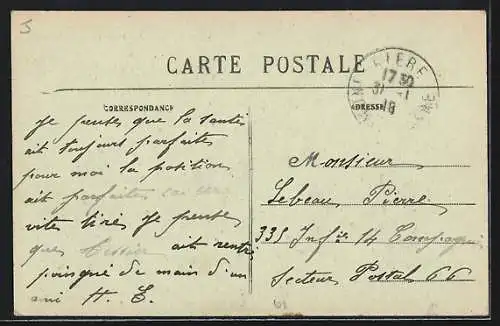 5
CARTE POSTALE
CORRESPONDANCE
ADRESSE
LIERE
17 30
31 -1
18
Je pense que la santé
ait toujours parfaites
pour moi la position
ait parfaites ca sera
vites tiré Je pense
que ait rentré
poingné de main d'un
ami H. E.
Monsieur
Lebeau Pierre
335 Infie 14 Compagnie
Secteur Postal 66